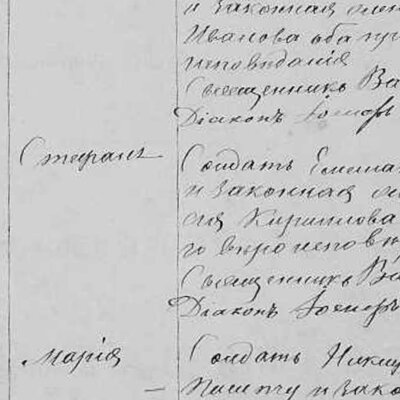 и законная
Иванова оба
исповѣданія
Священникъ Ва
Діаконъ Іосифъ
Стефанъ
Солдатъ
и законная
Кириллова
го вѣроисповѣ
Священникъ Ва
Діаконъ Іосифъ
Марія
Солдатъ Ники
и зако